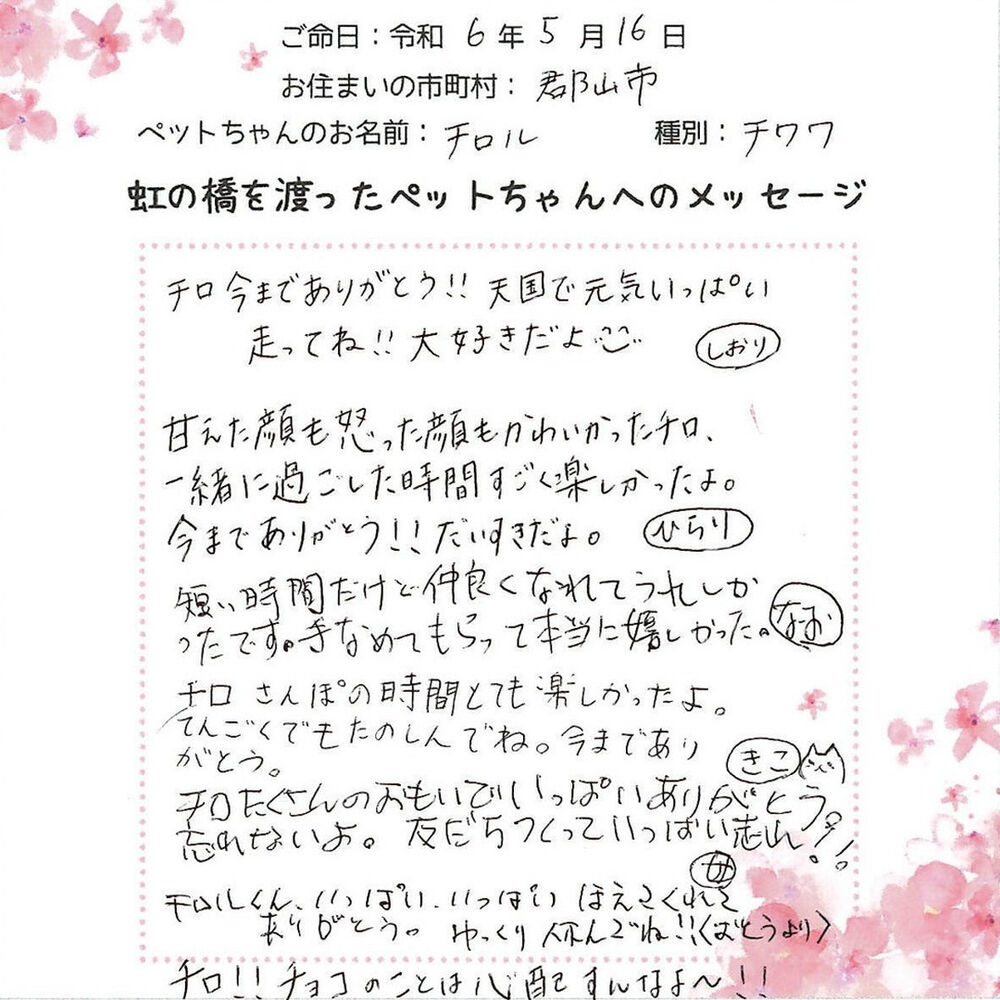 ご命日：令和 6 年 5 月 16 日
お住まいの市町村： 郡山市
ペットちゃんのお名前： チロル 種別： チワワ
虹の橋を渡ったペットちゃんへのメッセージ
チロ 今までありがとう!! 天国で元気いっぱい
走ってね!! 大好きだよ しおり
甘えた顔も怒った顔もかわいかったチロ、
一緒に過ごした時間すごく楽しかったよ。
今までありがとう!! だいすきだよ。 ひらり
短い時間だけど仲良くなれてうれしか
ったです。手なめてもらって本当に嬉しかった。 なお
チロ さんぽの時間とても楽しかったよ。
てんごくでもたのしんでね。今まであり
がとう。 きこ
チロたくさんのおもいでいっぱいありがとう。
忘れないよ。 友だちつくっていっぱい走れ!!
母
チロルくん、いっぱい、いっぱい ほえてくれて
ありがとう。 ゆっくり 休んでね!!〈ばとうより〉
チロ!! チョコのことは心配すんなよ～!!